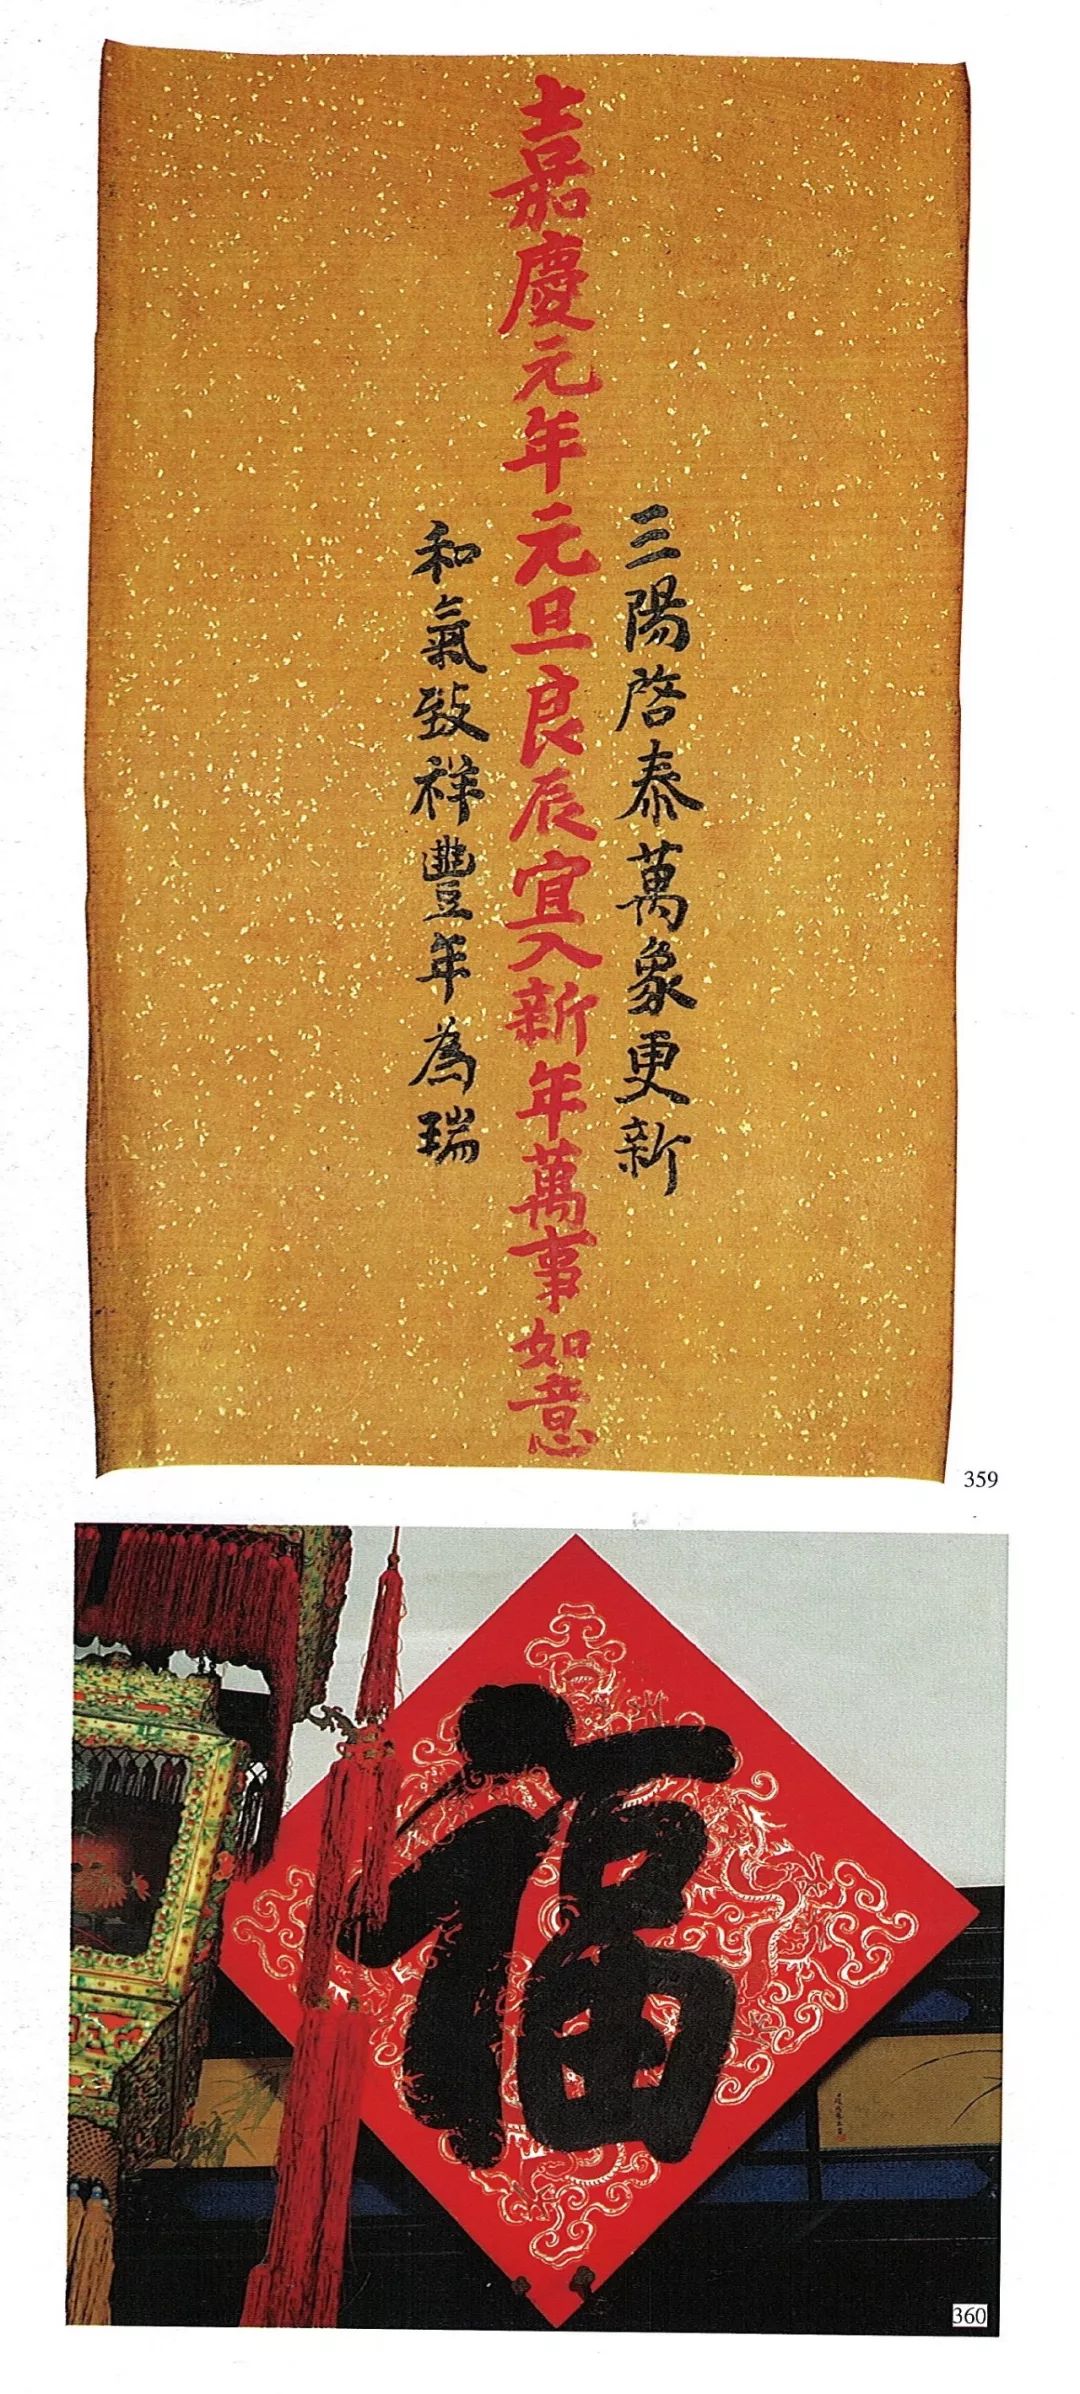 三陽啓泰萬象更新
嘉慶元年元旦良辰宜入新年萬事如意
和氣致祥豐年為瑞
359
福
360